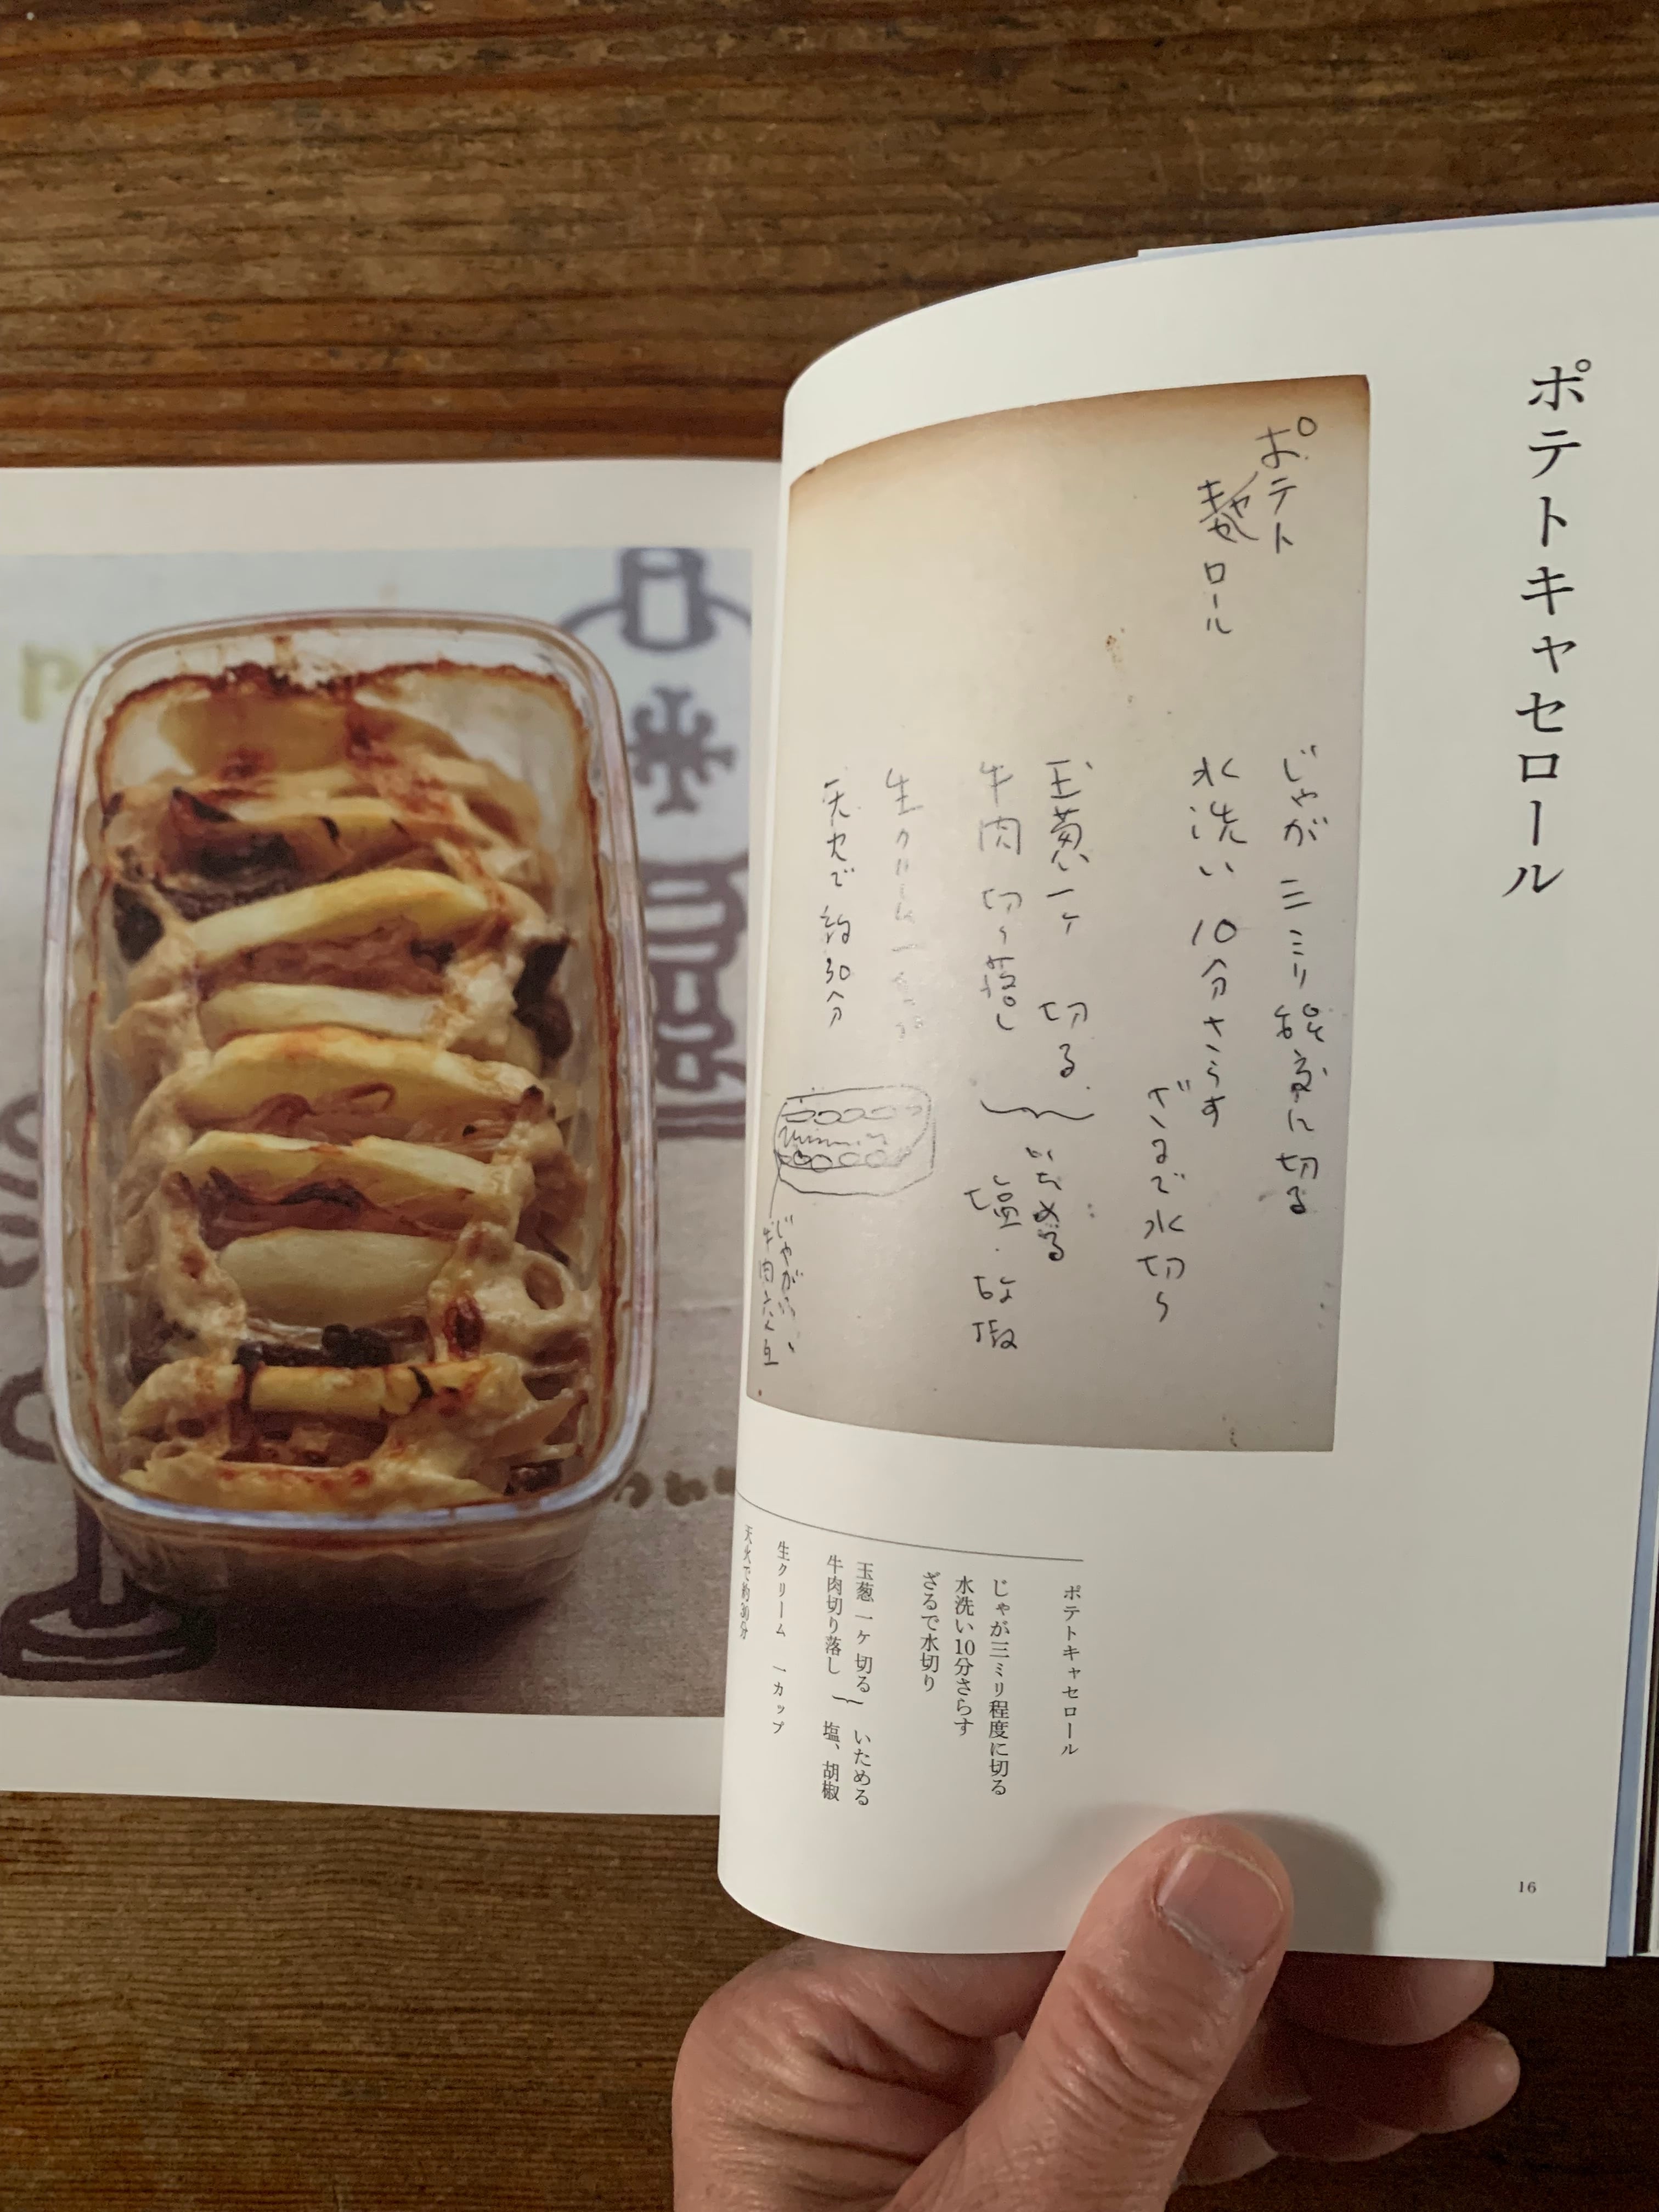 ポテトキャセロール
ポテト
キャセロール
じゃが 三ミリ程度に切る
水洗い 10分さらす
ざるで水切り
玉葱 一ケ 切る
牛肉 切り落し
いためる
塩・胡椒
生クリーム 一カップ
天火で 約30分
じゃがいも、
牛肉交互
ポテトキャセロール
じゃが三ミリ程度に切る
水洗い10分さらす
ざるで水切り
玉葱 一ケ 切る いためる
牛肉切り落し 塩、胡椒
生クリーム 一カップ
天火で約30分
16